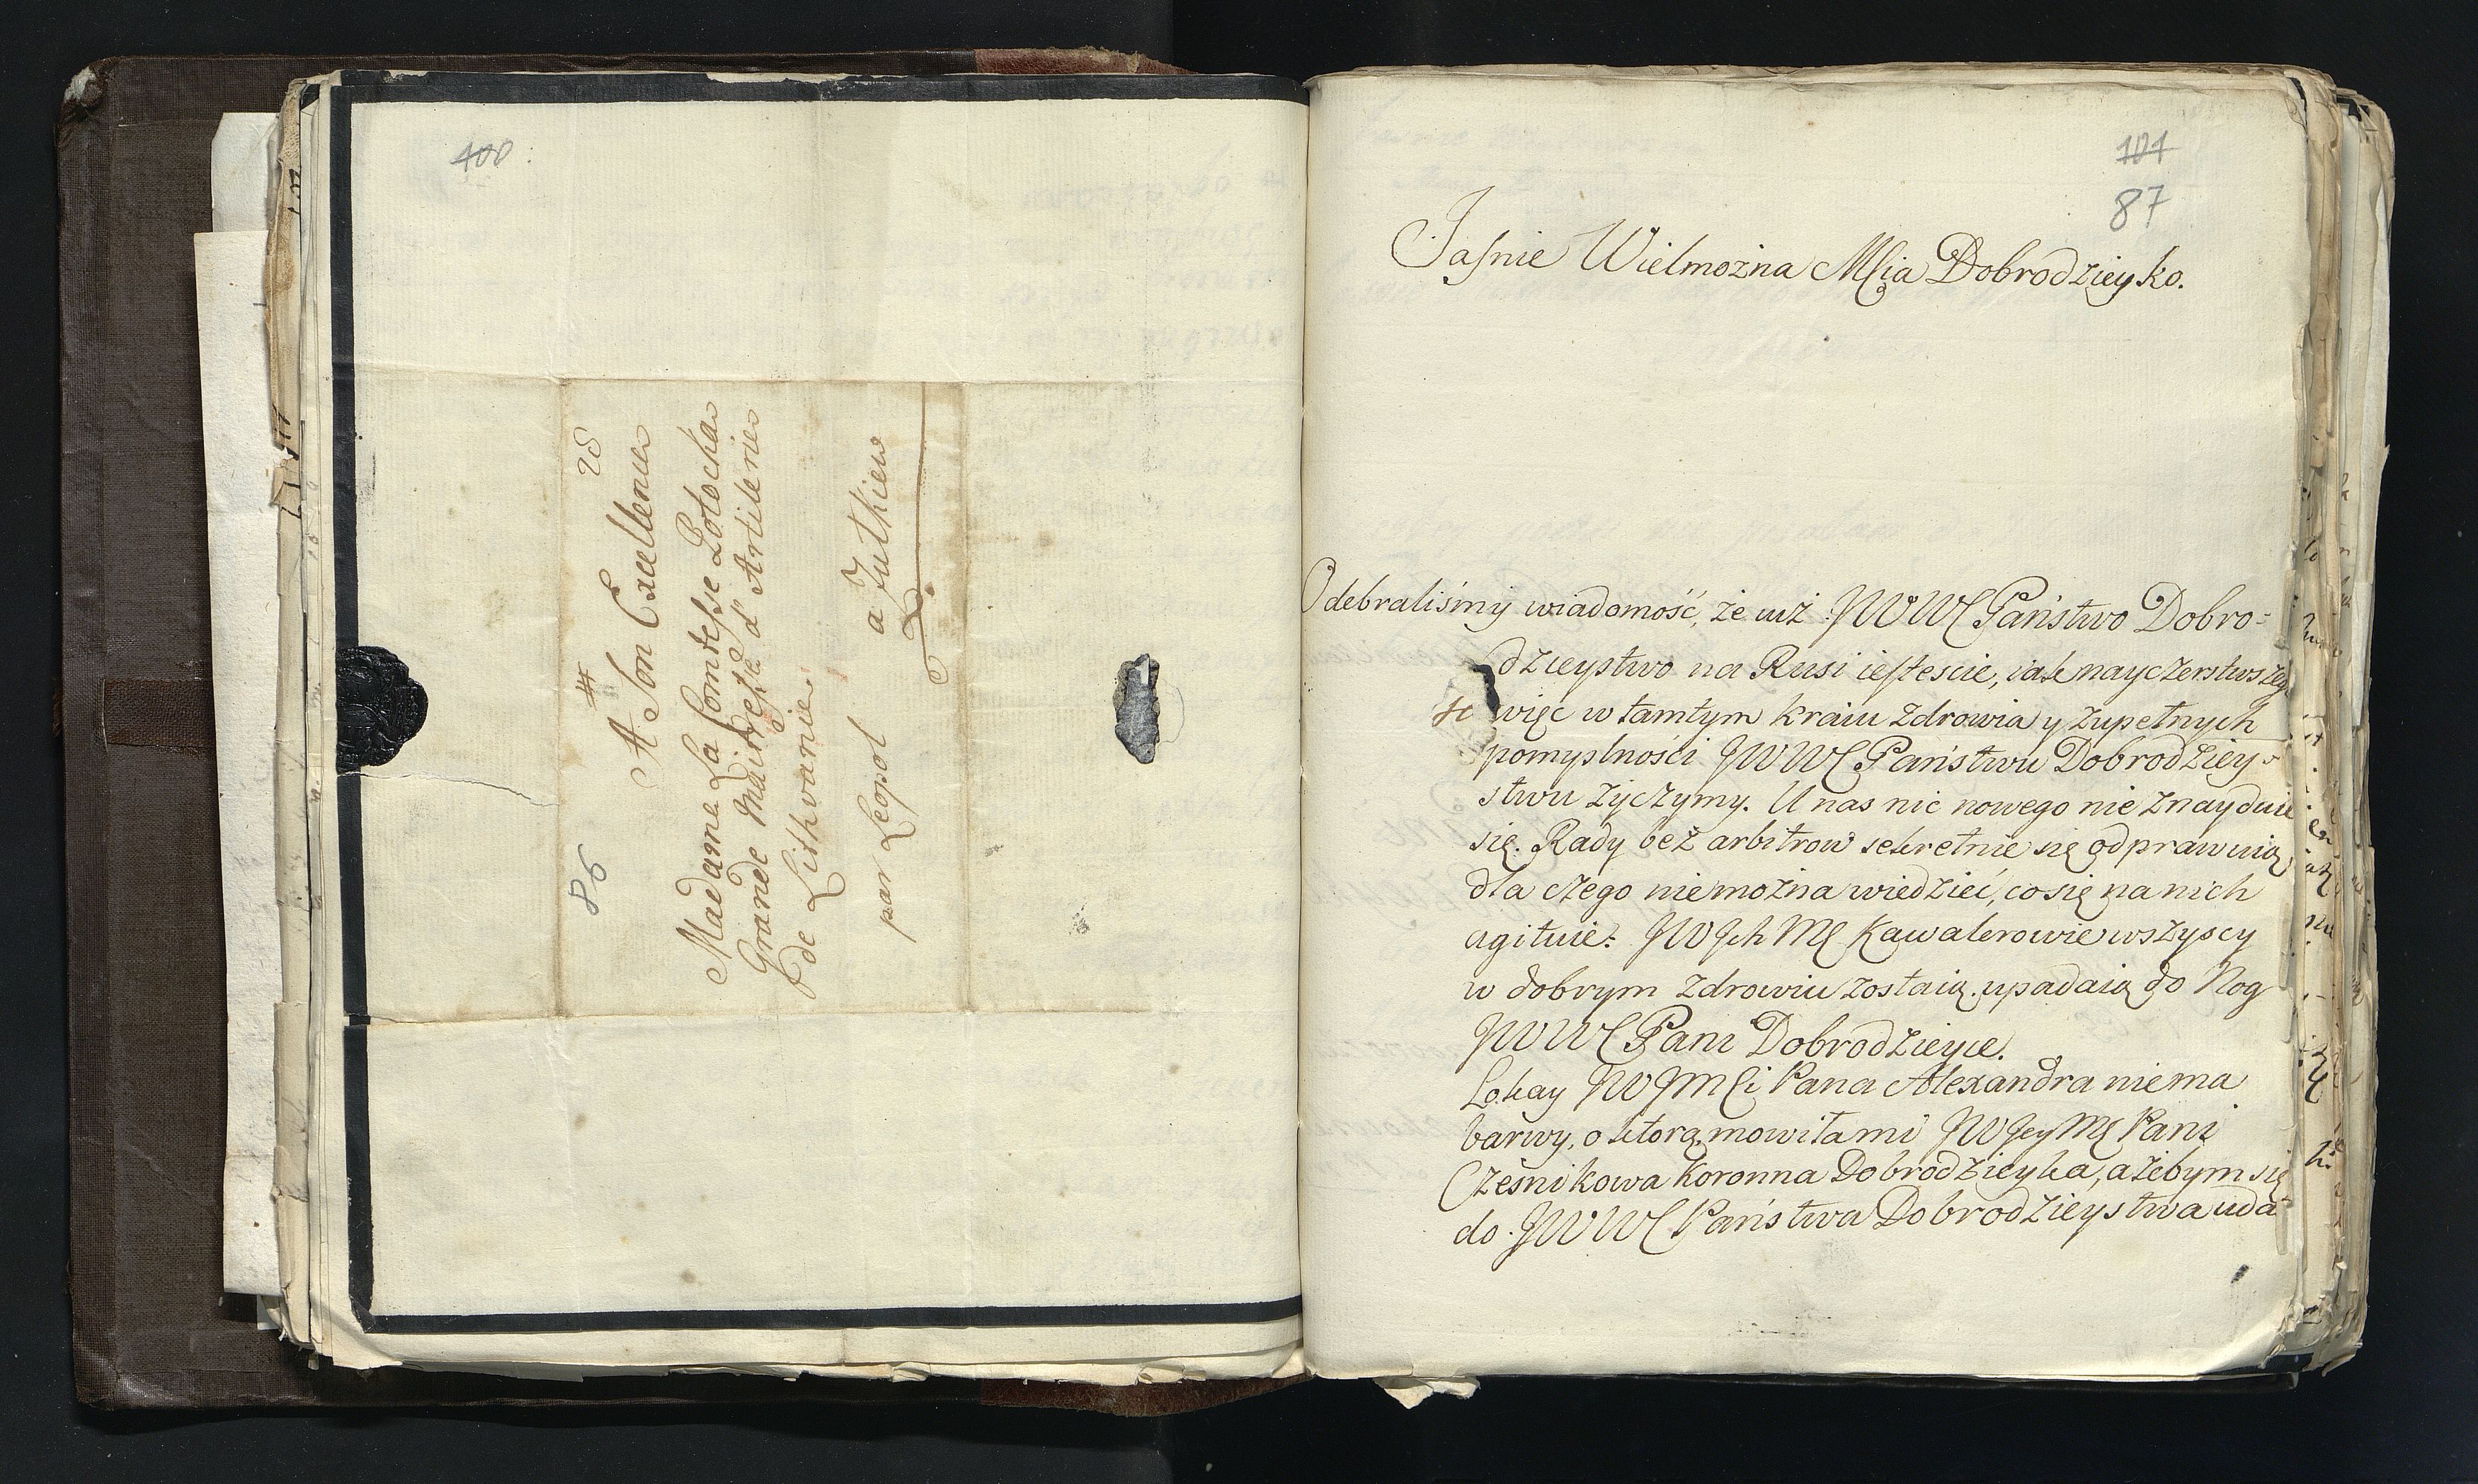 400.
86
25
A Son Excellence
Madame La Comtesse Potocka
Grande Maitresse d'Artilerie
de Lithvanie.
par Leopol a Zutkiew
101
87
Jaſnie Wielmożna Mſcia Dobrodzieyko.
Odebraliśmy wiadomość, że iuż JWWC Państwo Dobro=
dzieystwo na Rusi ieſteście, iak nayczerstwszeg
więc w tamtym kraiu zdrowia y zupełnych
pomyslności JWWC Państwu Dobrodziey=
stwu życzymy. U nas nic nowego nie znayduie
się. Rady beż arbitrow sekretnie się odprawuią
dla czego niemożna wiedzieć, co się na nich
agituie: JWJch MC Kawalerowie wszyscy
w dobrym zdrowiu zostaią, upadaią do Nog
JWWC Pani Dobrodzieyce.
Lokay JWJMCi Pana Alexandra niema
barwy, o ktorą mowiła mi JWJey MC Pani
Cześnikowa Koronna Dobrodzieyka, ażebym się
do JWWC Państwa Dobrodzieystwa uda